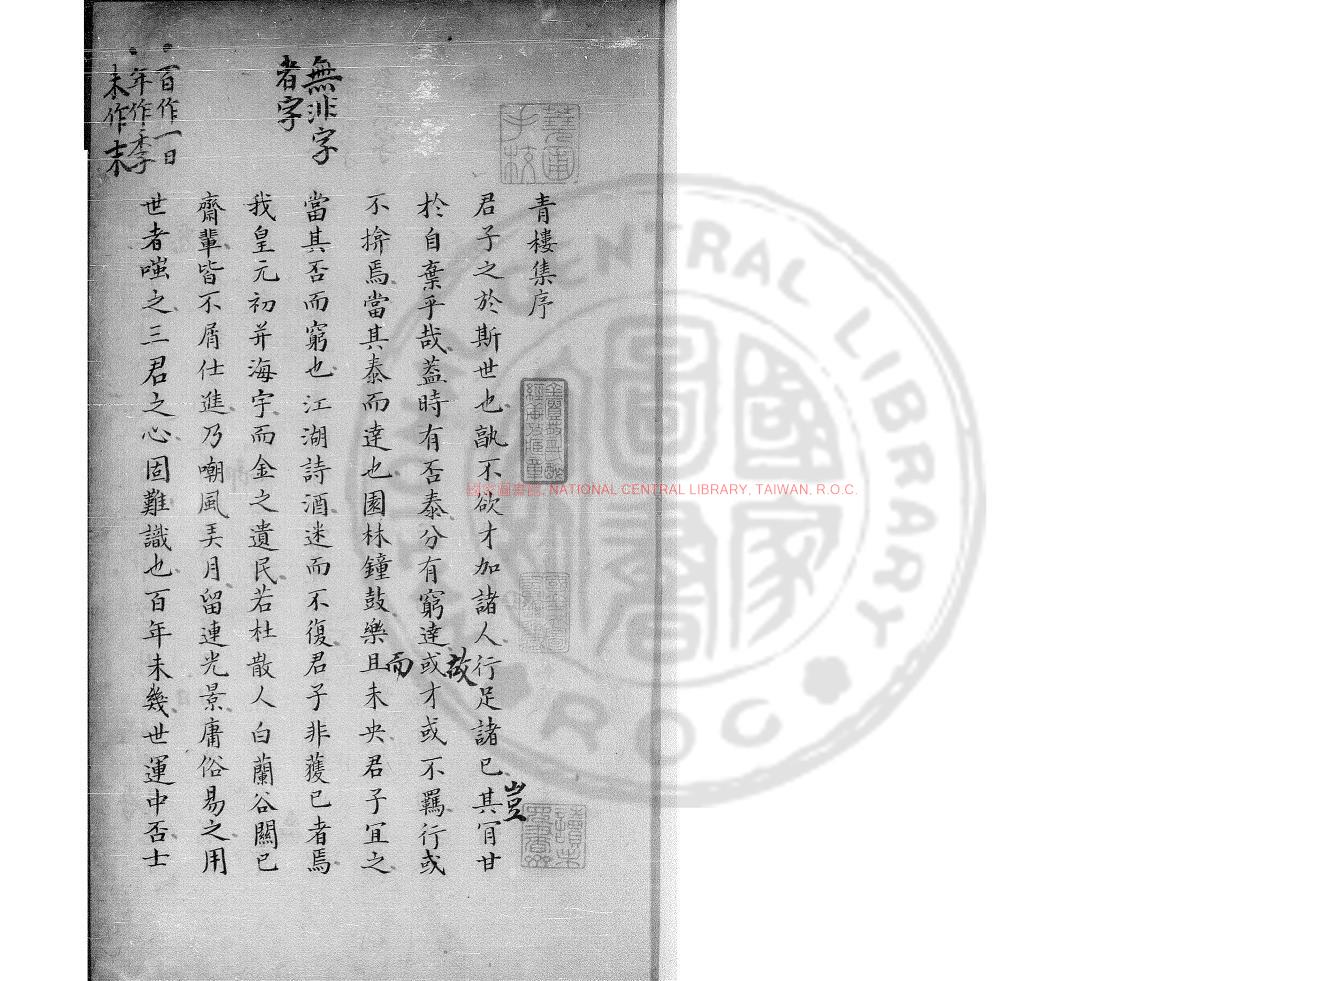 青樓集序
君子之於斯世也孰不欲才加諸人行足諸己其肎甘
豈
於自棄乎哉葢時有否泰分有窮達或才或不羈行或
故
不揜焉當其泰而達也園林鐘鼓樂且未央君子宜之
而
當其否而窮也江湖詩酒迷而不復君子非獲已者焉
我皇元初并海宇而金之遺民若杜散人白蘭谷關已
齋輩皆不屑仕進乃嘲風弄月留連光景庸俗易之用
世者嗤之三君之心固難識也百年未幾世運中否士
無非字
者字
百作一日
年作季
未作末
國家圖書館, NATIONAL CENTRAL LIBRARY, TAIWAN, R.O.C.
NATIONAL CENTRAL LIBRARY
ROC
國家圖書館